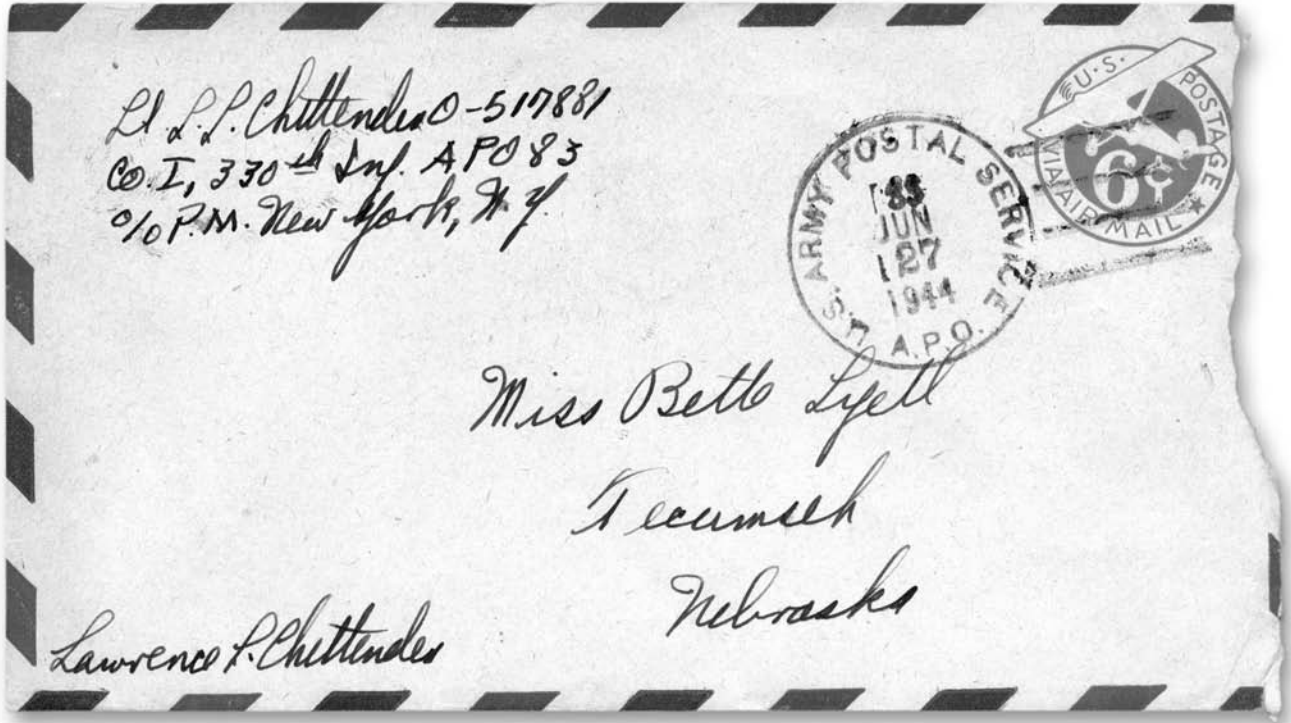 Lt. L. L. Chittenden O-517881
Co. I, 330th Inf. APO 83
c/o P.M. New York, N.Y.
U.S. ARMY POSTAL SERVICE
JUN
27
1944
A.P.O.
U.S. POSTAGE
6¢
VIA AIR MAIL
Miss Bette Lyell
Tecumseh
Nebraska
Lawrence L. Chittenden